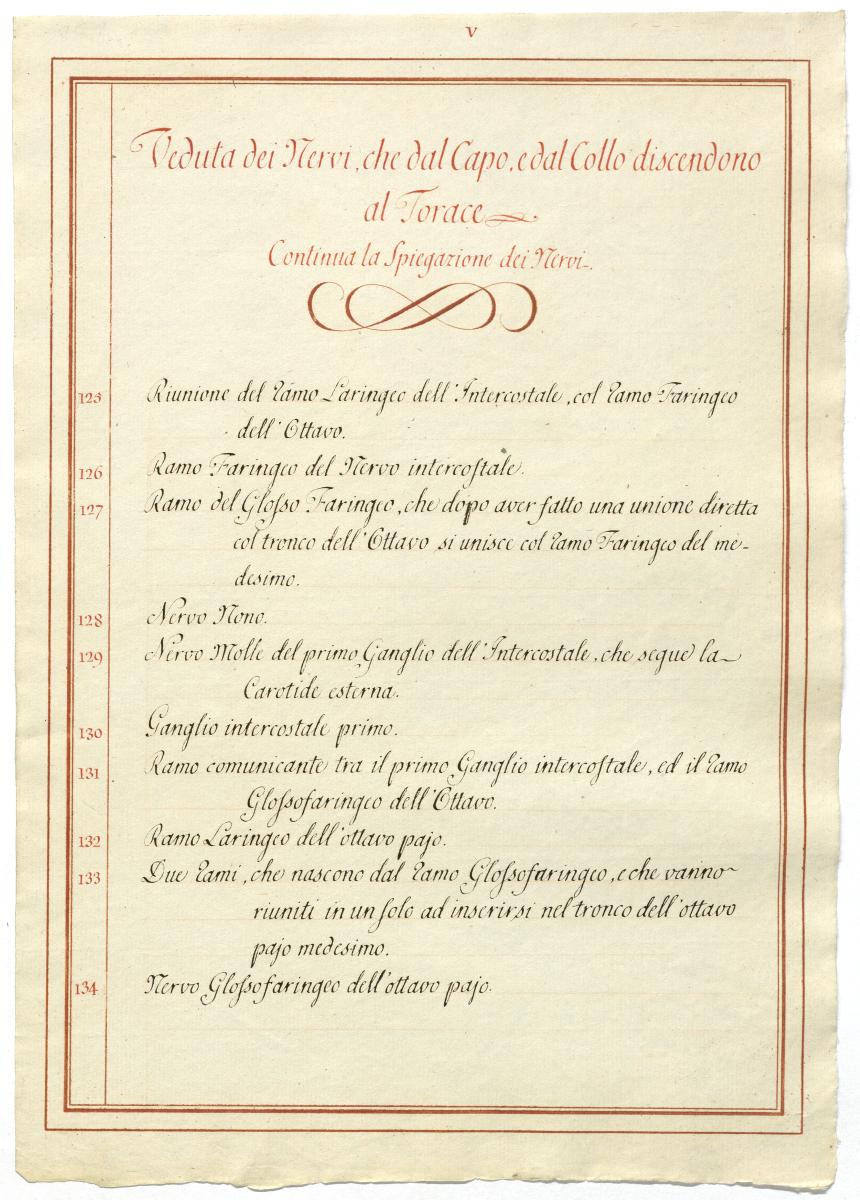 V
Veduta dei Nervi, che dal Capo, e dal Collo discendono
al Torace
Continua la Spiegazione dei Nervi.
125 Riunione del ramo Laringeo dell'Intercostale, col ramo Faringeo
dell'Ottavo.
126 Ramo Faringeo del Nervo intercostale.
127 Ramo del Glosso Faringeo, che dopo aver fatto una unione diretta
col tronco dell'Ottavo si unisce col ramo Faringeo del me-
desimo.
128 Nervo Nono.
129 Nervo Molle del primo Ganglio dell'Intercostale, che segue la
Carotide esterna.
130 Ganglio intercostale primo.
131 Ramo comunicante tra il primo Ganglio intercostale, ed il ramo
Glossofaringeo dell'Ottavo.
132 Ramo Laringeo dell'ottavo pajo.
133 Due rami, che nascono dal ramo Glossofaringeo, e che vanno
riuniti in un solo ad inserirsi nel tronco dell'ottavo
pajo medesimo.
134 Nervo Glossofaringeo dell'ottavo pajo.